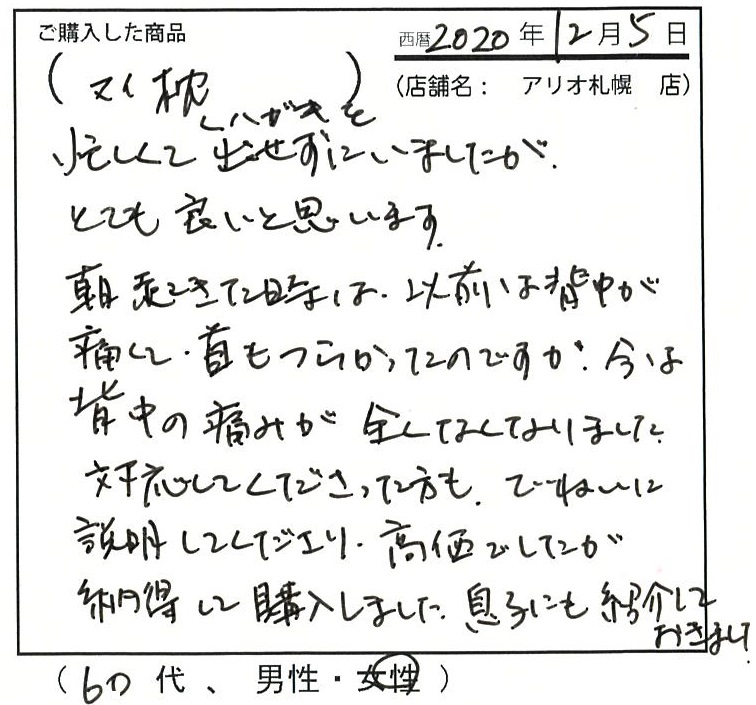 ご購入した商品
西暦2020年12月5日
(マイ枕)
(店舗名： アリオ札幌 店)
ハガキを
忙しくて出せずにいましたが、
とても良いと思います。
朝起きた時は、以前は背中が
痛くて、首もつらかったのですが、今は
背中の痛みが全くなくなりました。
対応してくださった方も、ていねいに
説明してくださり、高価でしたが
納得して購入しました。息子にも紹介して
おきました。
(60代、男性・女性)